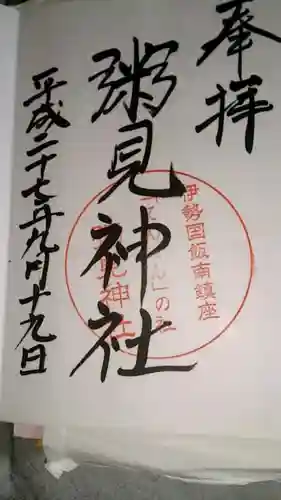 奉拝
粥見神社
平成二十七年九月十九日
伊勢国飯南鎮座
の社
見神社